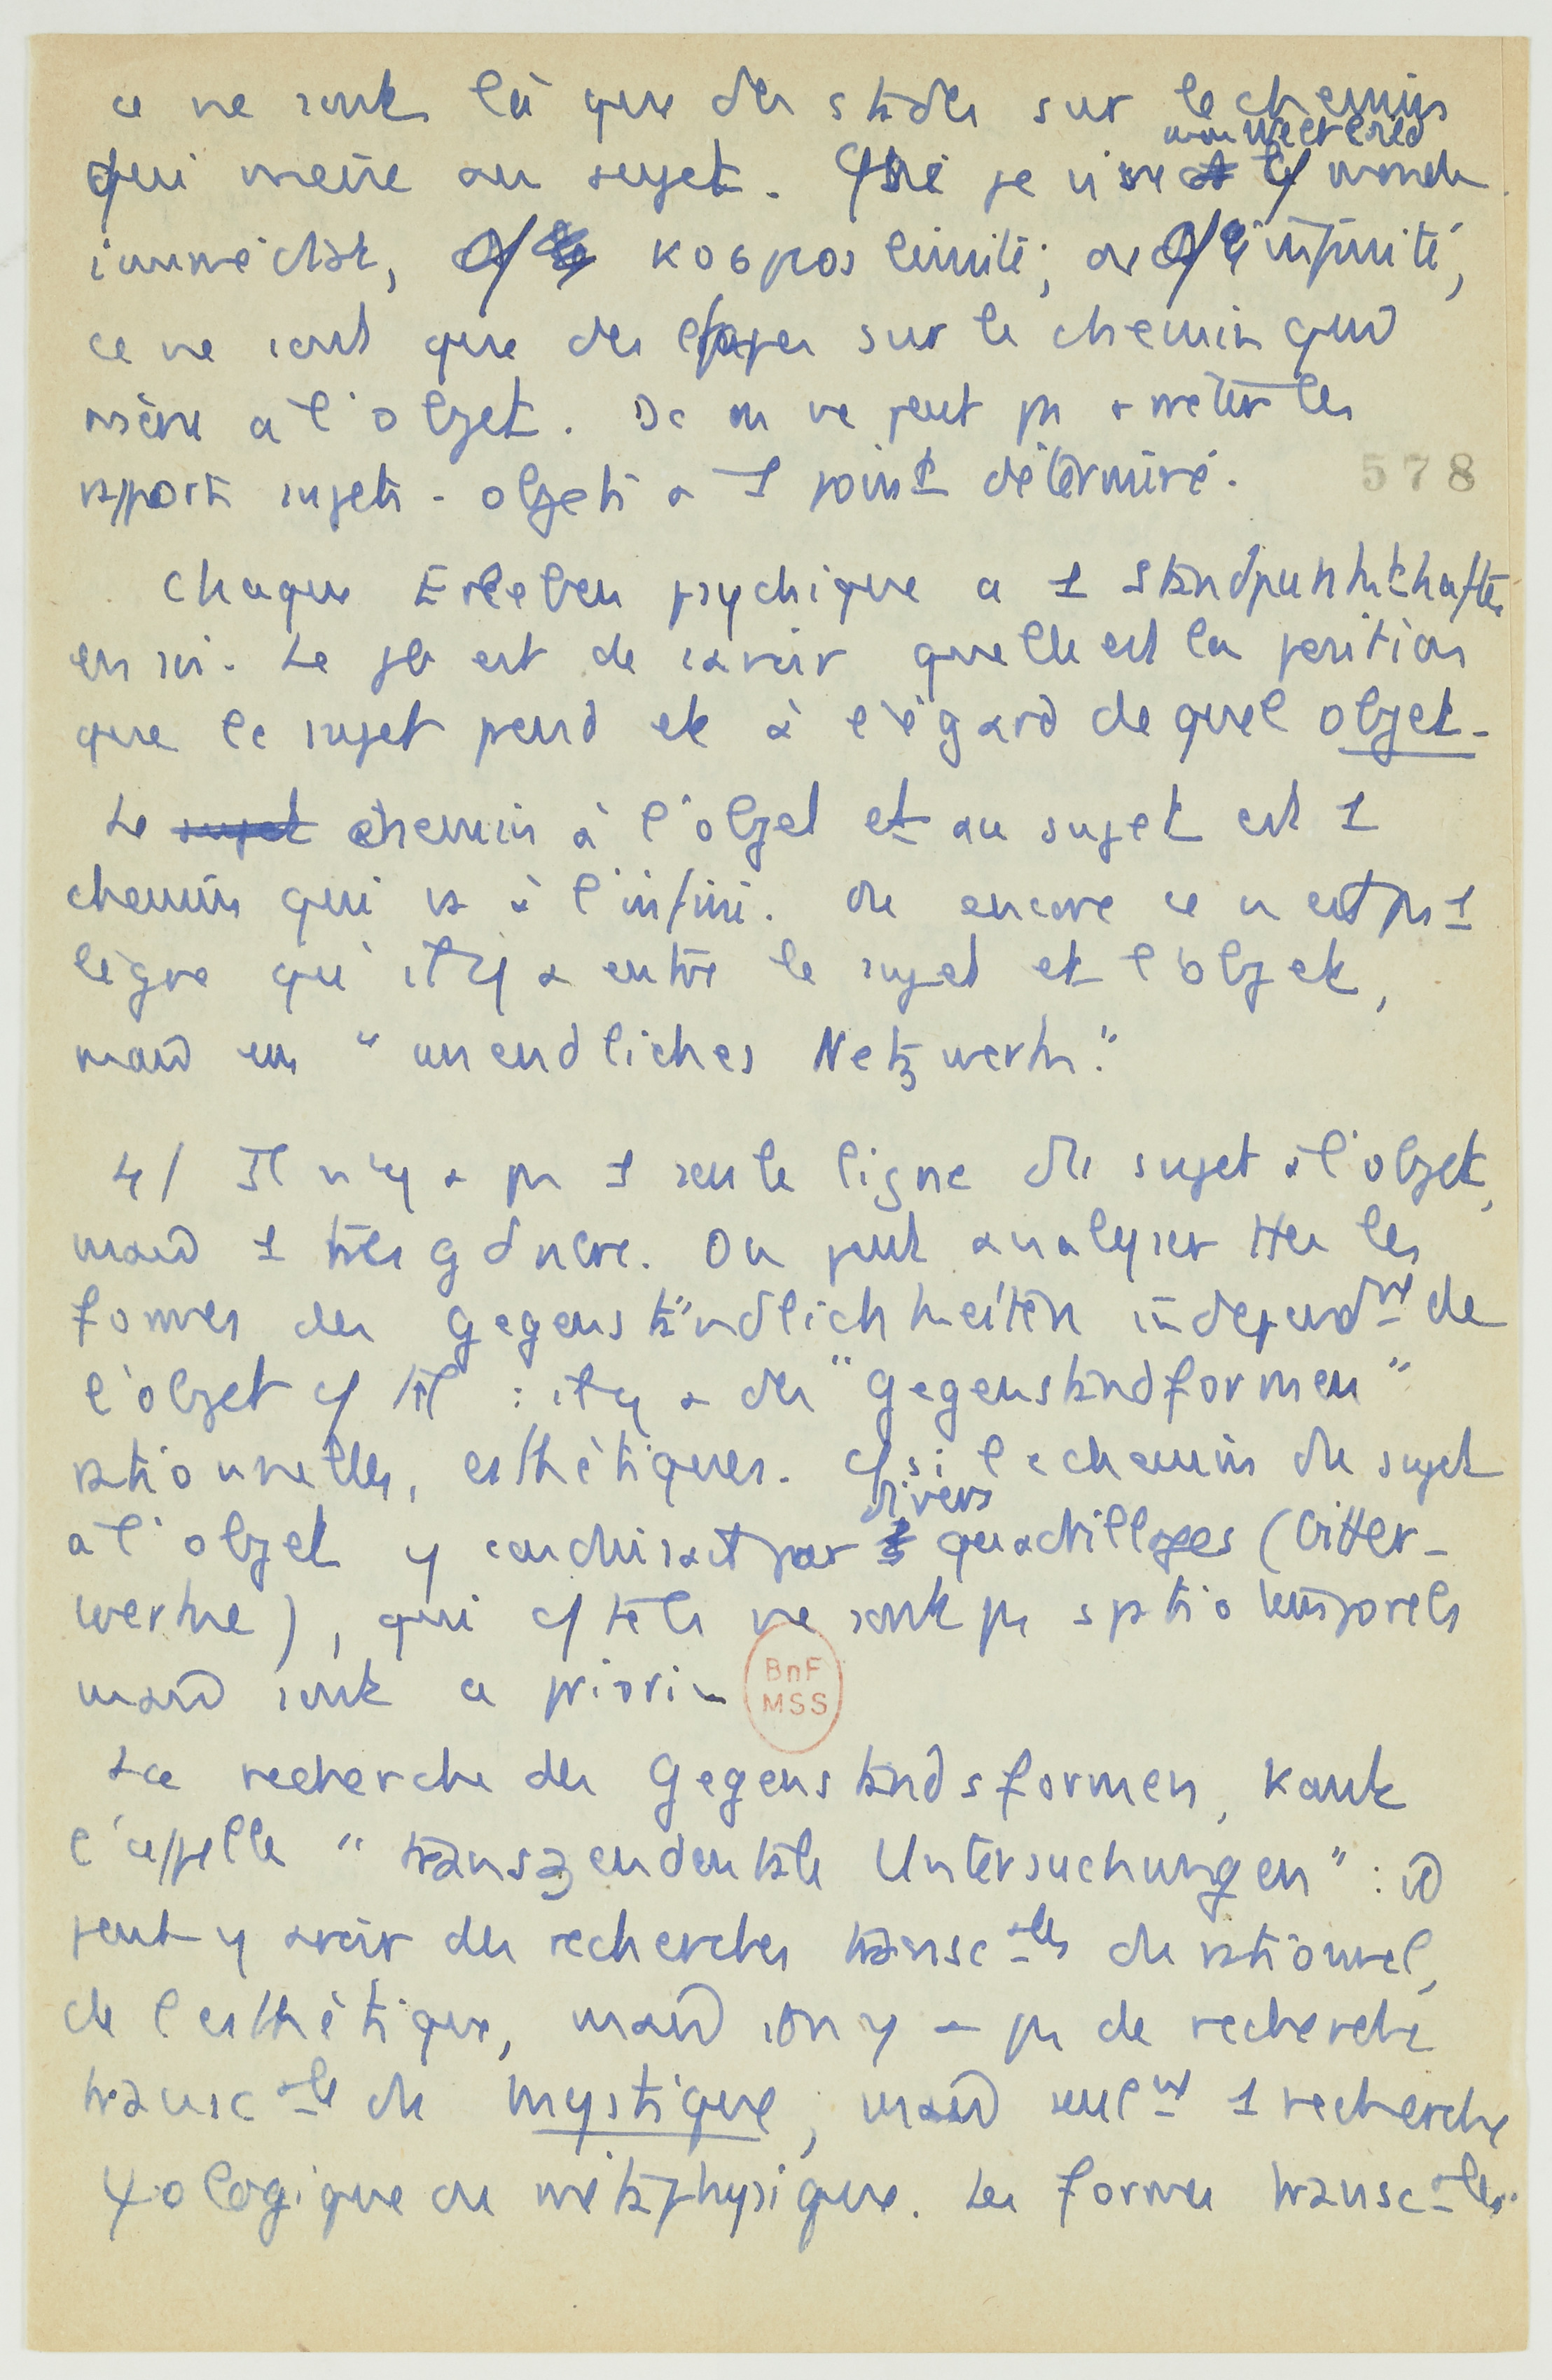 ce ne sont là que des stades sur le chemin
qui mène au sujet. Que je vise le monde
immédiat, κοσμος limité, ou l'infinité,
ce ne sont que des étapes sur le chemin qui
mène à l'objet. Dc on ne peut pas arrêter les
rapports sujets - objets à 1 point déterminé.
578
Chaque Erleben psychique a 1 Standpunkthaftes
en soi. Le pb est de savoir quelle est la position
que le sujet prend et à l'égard de quel objet.
Le sujet chemin à l'objet et au sujet est 1
chemin qui va à l'infini. Ou encore ce n'est pas 1
ligne qu'il y a entre le sujet et l'objet,
mais un "unendliches Netzwerk".
4/ Il n'y a pas 1 seule ligne du sujet à l'objet,
mais 1 très gd nbre. On peut analyser ttes les
formes des Gegenständlichkeiten independmt de
l'objet cf tel : il y a des "Gegenstandformen"
rationnelles, esthétiques. Cf si le chemin du sujet
divers
à l'objet y conduisait par quadrillages (Gitter-
werke), qui cf tels ne sont pas spatio temporels
mais sont a priori.
BnF
MSS
La recherche des Gegenstandsformen, Kant
l'appelle "transzendentale Untersuchungen" : il
peut y avoir des recherches transc ales du rationnel,
de l'esthétique, mais il n'y a pas de recherche
transc ale du mystique, mais seulmt 1 recherche
ψologique ou métaphysique. Les formes transc ales